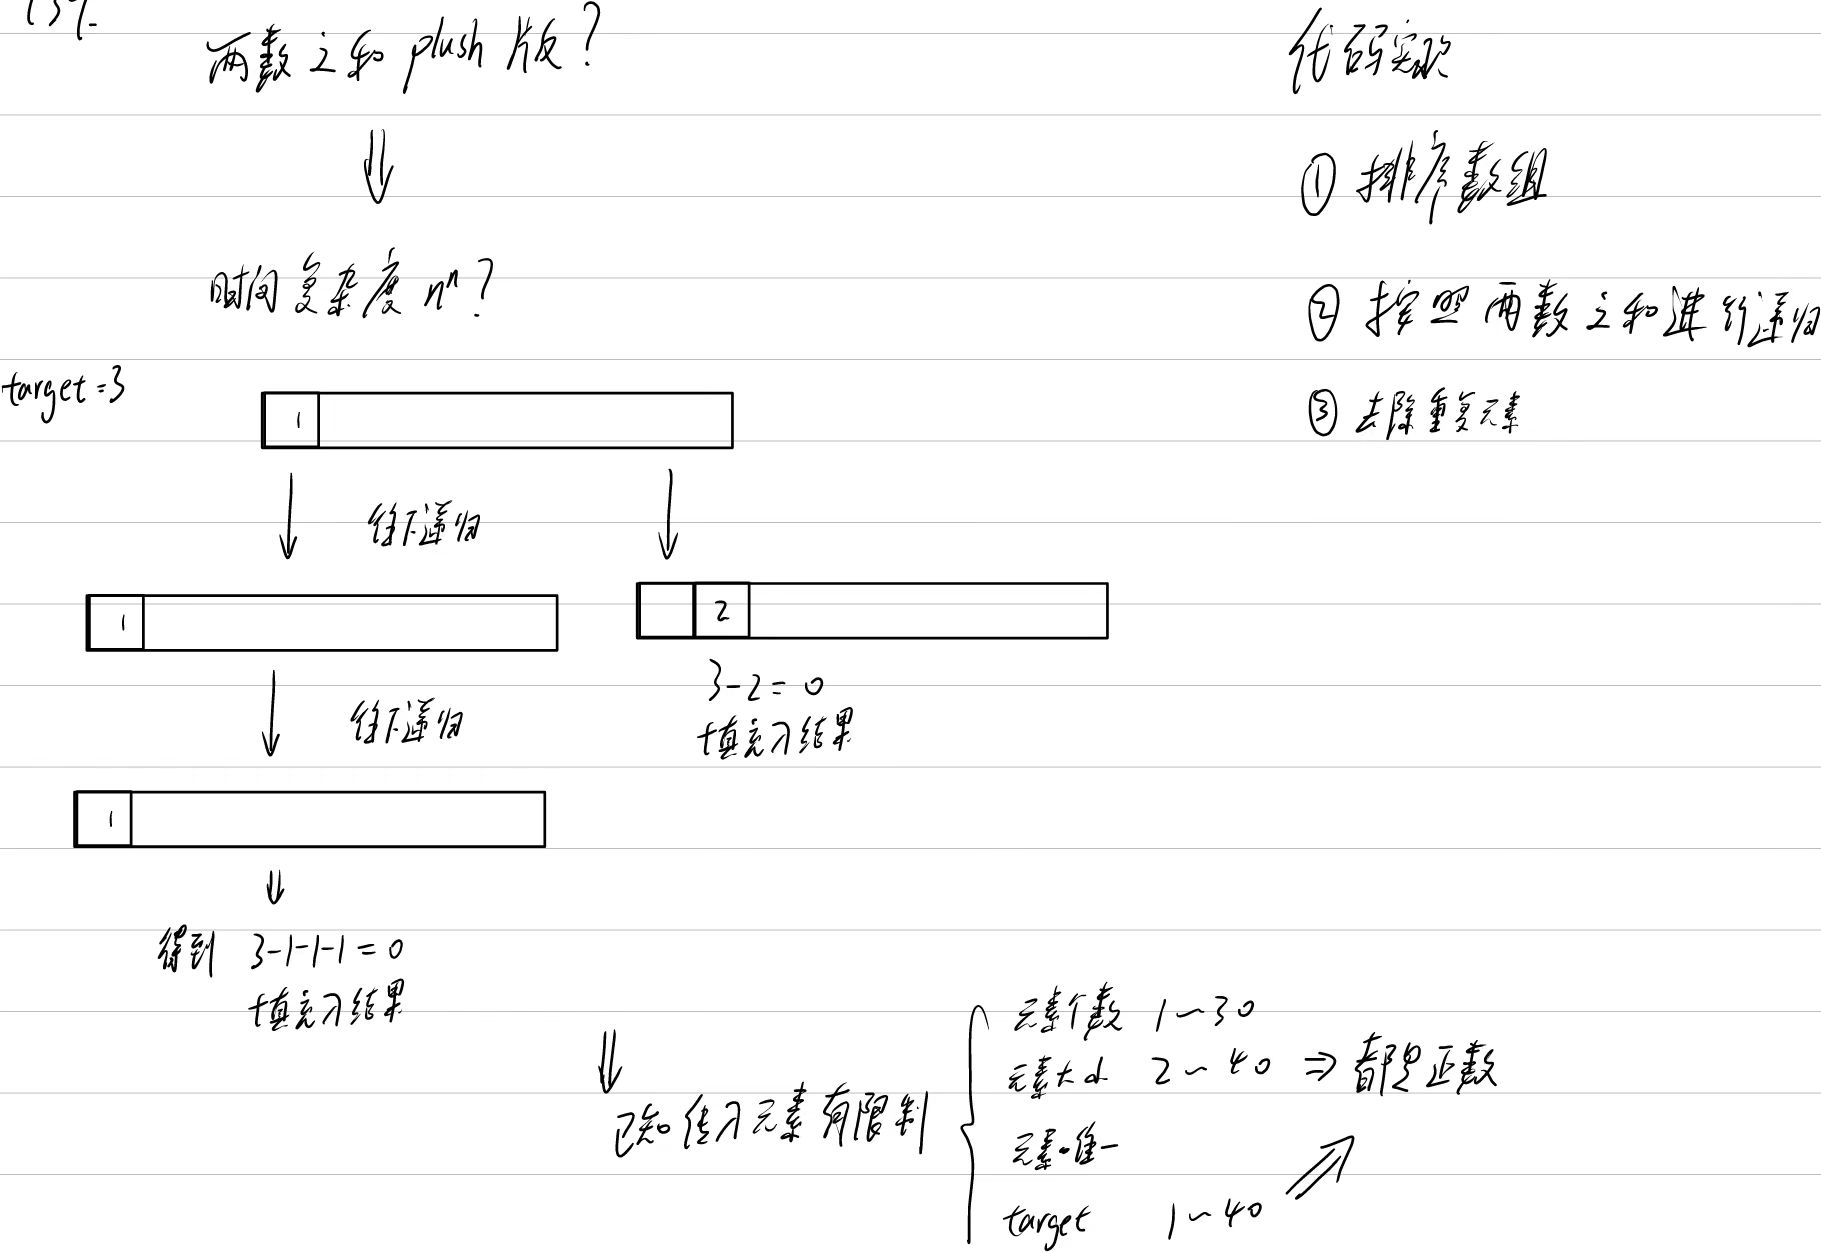 两数之和 plush 版?
时间复杂度 nⁿ?
target=3
1
往下递归
1
2
3-2=0
填充入结果
往下递归
1
得到 3-1-1-1=0
填充入结果
已知传入元素有限制
元素个数 1~30
元素大小 2~40 ⇒ 都是正数
元素唯一
target 1~40
代码实现
① 排序数组
② 按照两数之和进行递归
③ 去除重复元素